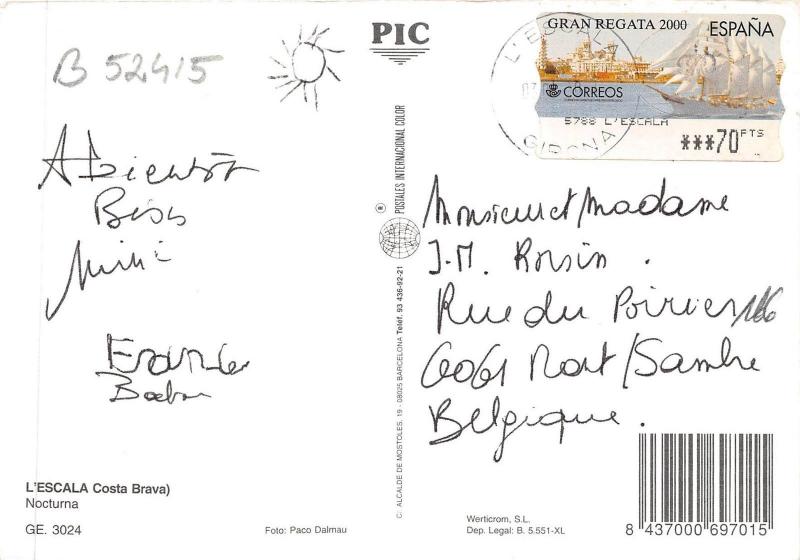 B 52415
PIC
GRAN REGATA 2000 ESPAÑA
CORREOS
5788 L'ESCALA
***70 FTS
L'ESCAL
07
GIRONA
A bientôt
Bisous
Mimi
Monsieur et madame
J-M.
Rue du Poirier 166
6061 Mont/Sambre
Belgique.
POSTALES INTERNACIONAL COLOR
®
C: ALCALDE DE MOSTOLES, 19 - 08025 BARCELONA Teléf. 93 436-92-21
L'ESCALA Costa Brava)
Nocturna
GE. 3024
Foto: Paco Dalmau
Werticrom, S.L.
Dep. Legal: B. 5.551-XL
8 437000 697015